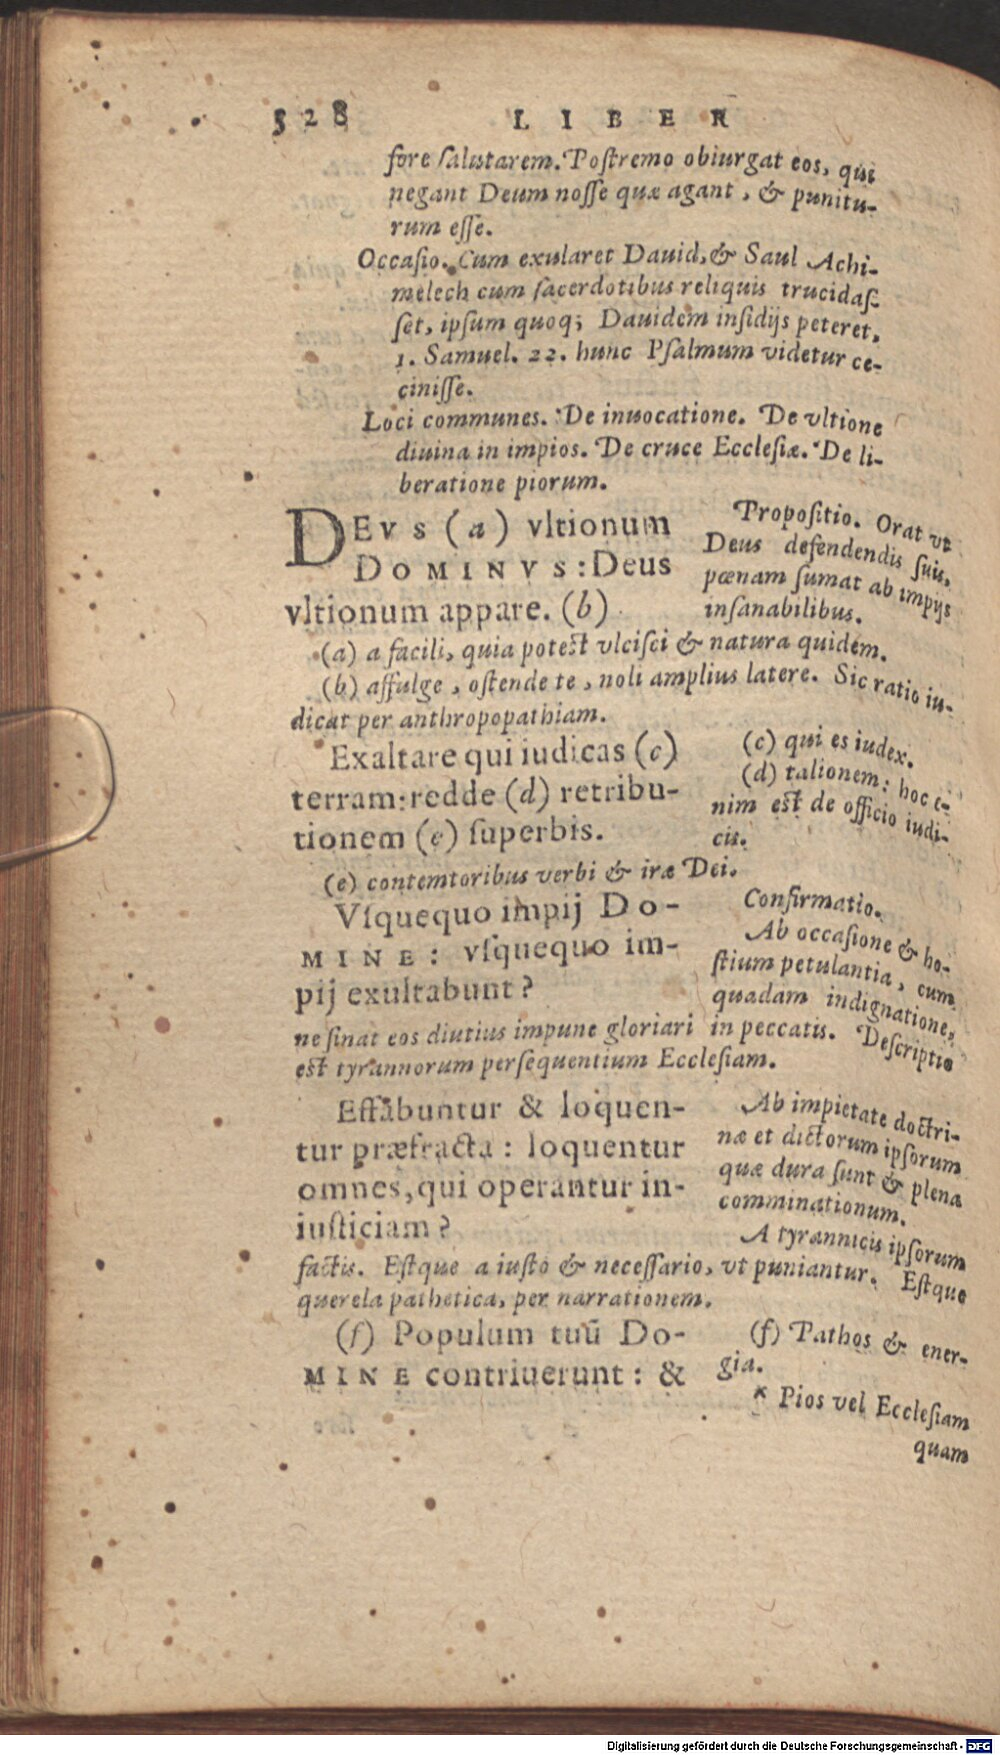 528 LIBER
fore salutarem. Postremo obiurgat eos, qui
negant Deum nosse quæ agant, & punitu-
rum esse.
Occasio. Cum exularet Dauid, & Saul Achi-
melech cum sacerdotibus reliquis trucidas-
set, ipsum quoq; Dauidem insidijs peteret,
1. Samuel. 22. hunc Psalmum videtur ce-
cinisse.
Loci communes. De inuocatione. De vltione
diuina in impios. De cruce Ecclesiæ. De li-
beratione piorum.
DEVS (a) vltionum
DOMINVS: Deus
vltionum appare. (b)
Propositio. Orat vt
Deus defendendis suis,
pœnam sumat ab impijs
insanabilibus.
(a) a facili, quia potest vlcisci & natura quidem.
(b) affulge, ostende te, noli amplius latere. Sic ratio iu-
dicat per anthropopathiam.
Exaltare qui iudicas (c)
terram: redde (d) retribu-
tionem (e) superbis.
(c) qui es iudex.
(d) talionem: hoc e-
nim est de officio iudi-
cis.
(e) contemtoribus verbi & iræ Dei.
Vsquequo impij DO-
MINE: vsquequo im-
pij exultabunt?
Confirmatio.
Ab occasione & ho-
stium petulantia, cum
quadam indignatione,
ne sinat eos diutius impune gloriari in peccatis. Descriptio
est tyrannorum persequentium Ecclesiam.
Effabuntur & loquen-
tur præfracta: loquentur
omnes, qui operantur in-
iusticiam?
Ab impietate doctri-
næ et dictorum ipsorum
quæ dura sunt & plena
comminationum.
A tyrannicis ipsorum
factis. Estque a iusto & necessario, vt puniantur. Estque
querela pathetica, per narrationem.
(f) Populum tuū DO-
MINE contriuerunt: &
(f) Pathos & ener-
gia.
* Pios vel Ecclesiam
quam
Digitalisierung gefördert durch die Deutsche Forschungsgemeinschaft - DFG